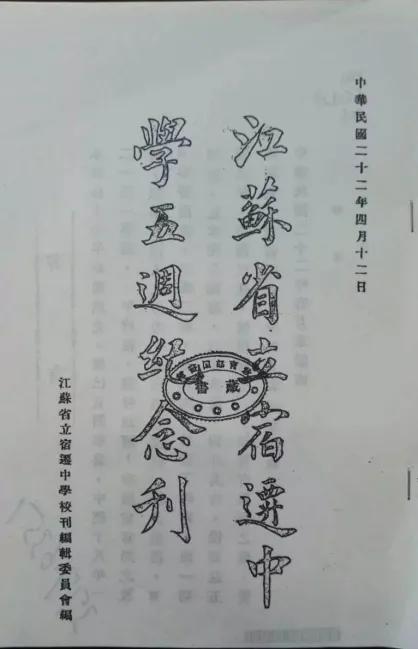 中華民國二十二年四月十二日
江蘇省立宿遷中
學五週紀念刊
藏書
江蘇省立宿遷中學校刊編輯委員會編